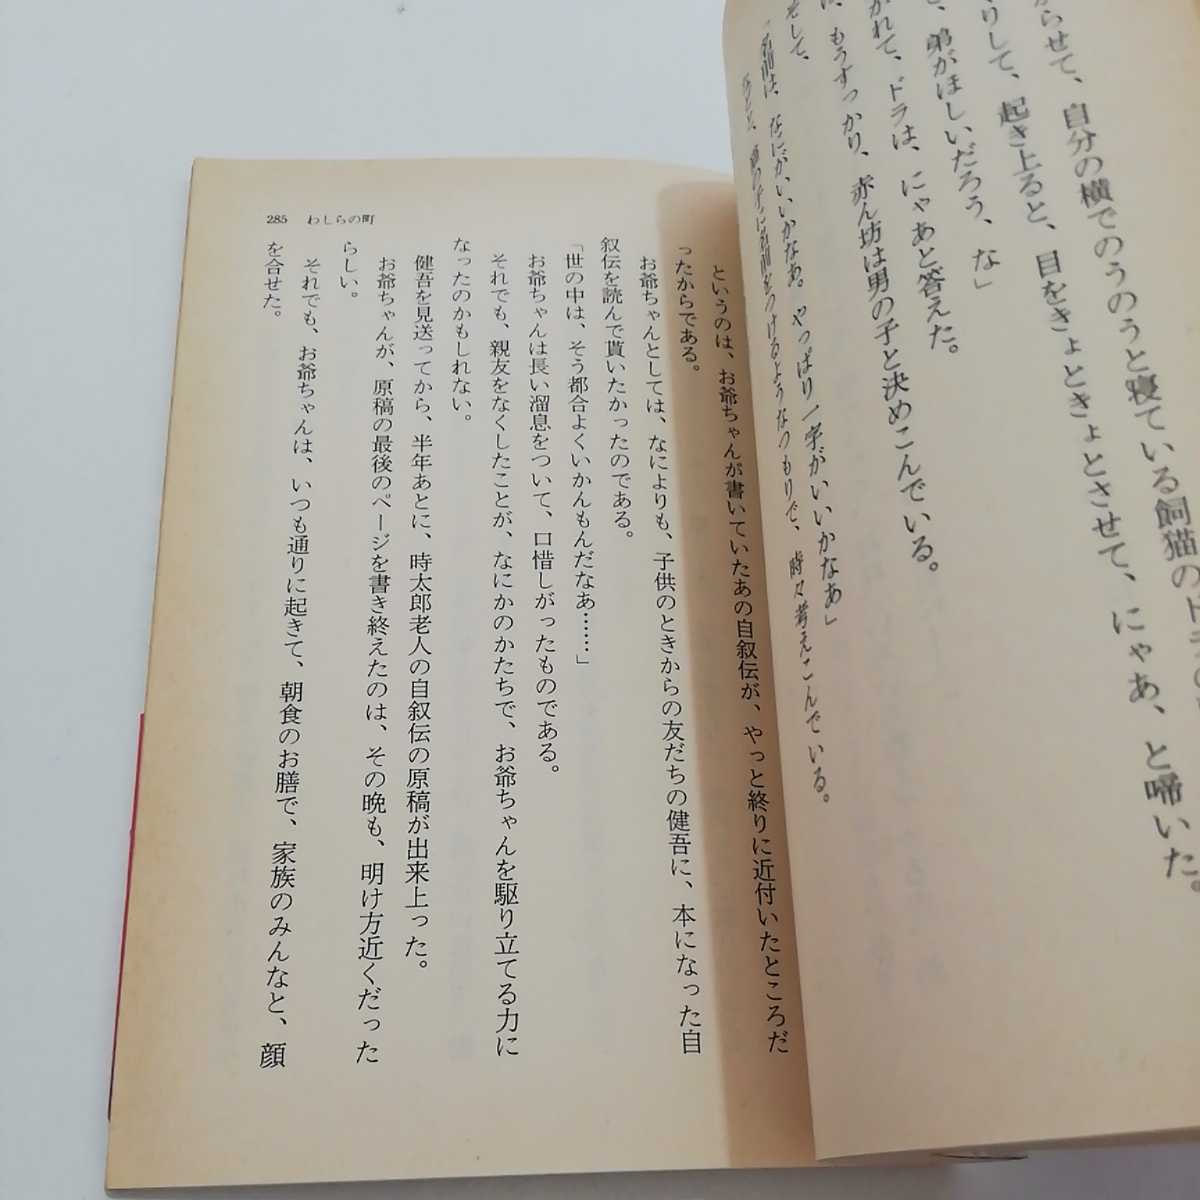 からせて、自分の横でのうのうと寝ている飼猫のドラ
りして、起き上ると、目をきょときょとさせて、にゃあ、と啼いた。
弟がほしいだろう、な」
がれて、ドラは、にゃあと答えた。
、もうすっかり、赤ん坊は男の子と決めこんでいる。
そして、
「名前は、なにがいいかなあ。やっぱり一字がいいかなあ」
名前をつけるようなつもりで、時々考えこんでいる。
285 わしらの町
というのは、お爺ちゃんが書いていたあの自叙伝が、やっと終りに近付いたところだ
ったからである。
お爺ちゃんとしては、なによりも、子供のときからの友だちの健吾に、本になった自
叙伝を読んで貰いたかったのである。
「世の中は、そう都合よくいかんもんだなあ……」
お爺ちゃんは長い溜息をついて、口惜しがったものである。
それでも、親友をなくしたことが、なにかのかたちで、お爺ちゃんを駆り立てる力に
なったのかもしれない。
健吾を見送ってから、半年あとに、時太郎老人の自叙伝の原稿が出来上った。
お爺ちゃんが、原稿の最後のページを書き終えたのは、その晩も、明け方近くだった
らしい。
それでも、お爺ちゃんは、いつも通りに起きて、朝食のお膳で、家族のみんなと、顔
を合せた。